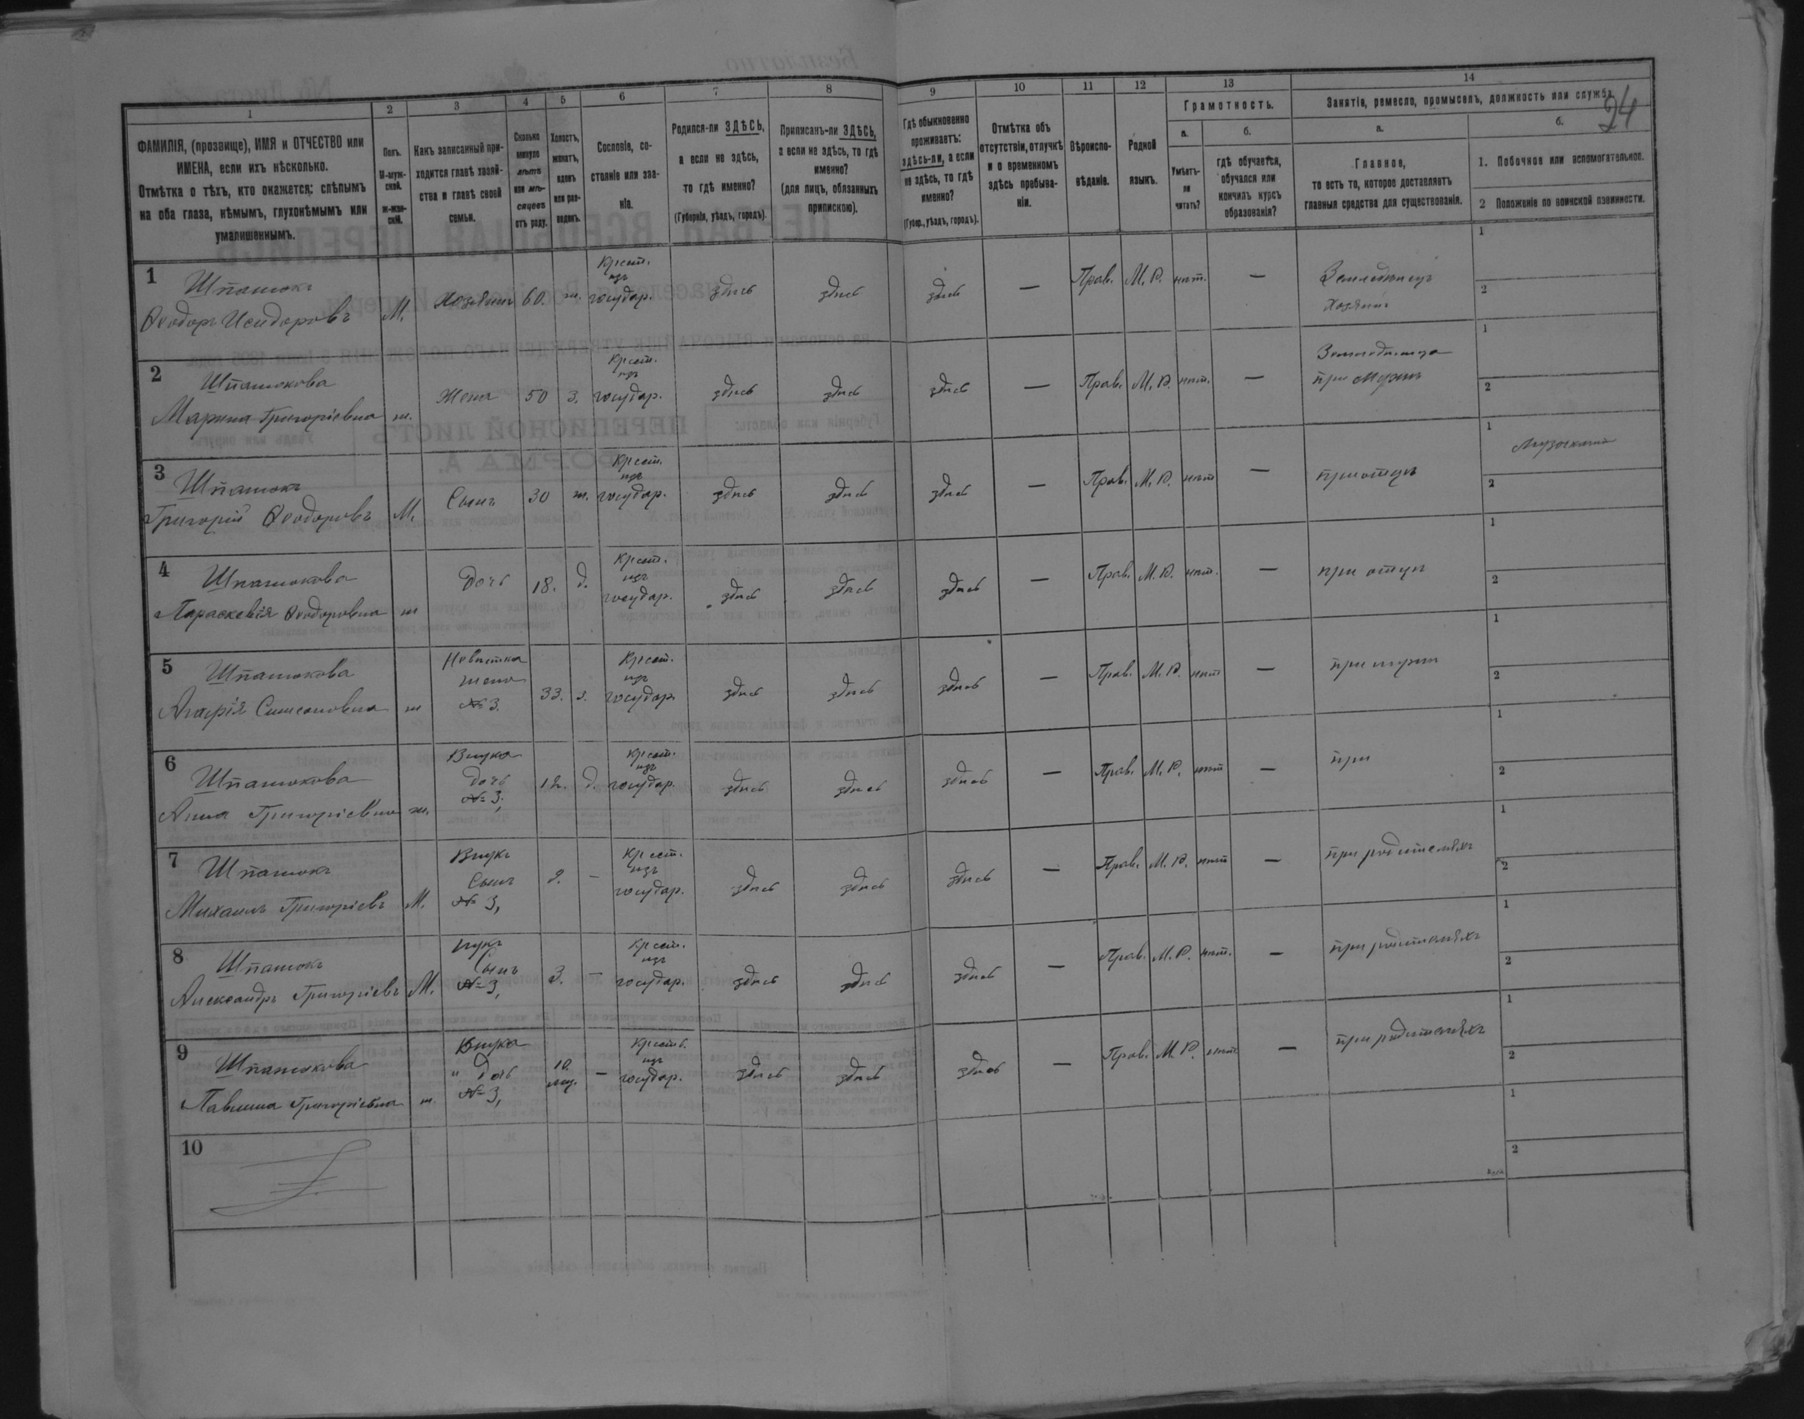 24
1
2
3
4
5
6
7
8
9
10
11
12
13
14
ФАМИЛІЯ, (прозвище), ИМЯ и ОТЧЕСТВО или
ИМЕНА, если ихъ нѣсколько.
Отмѣтка о тѣхъ, кто окажется: слѣпымъ
на оба глаза, нѣмымъ, глухонѣмымъ или
умалишеннымъ.
Полъ.
М-муж-
ской.
ж-жен-
скій.
Какъ записанный при-
ходится главѣ хозяй-
ства и главѣ своей
семьи.
Сколько
минуло
лѣтъ
или мѣ-
сяцевъ
отъ роду.
Холостъ,
женатъ,
вдовъ
или раз-
веденъ.
Сословіе, со-
стояніе или зва-
ніе.
Родился-ли ЗДѢСЬ,
а если не здѣсь,
то гдѣ именно?
(Губернія, уѣздъ, городъ).
Приписанъ-ли ЗДѢСЬ,
а если не здѣсь, то гдѣ
именно?
(для лицъ, обязанныхъ
припискою).
Гдѣ обыкновенно
проживаетъ:
здѣсь-ли, а если
не здѣсь, то гдѣ
именно?
(Губер., уѣздъ, городъ).
Отмѣтка объ
отсутствіи, отлучкѣ
и о временномъ
здѣсь пребыва-
ніи.
Вѣроиспо-
вѣданіе.
Родной
языкъ.
Грамотность.
а.
Умѣетъ-
ли
читать?
б.
гдѣ обучается,
обучался или
кончилъ курсъ
образованія?
Занятіе, ремесло, промыселъ, должность или служба.
а.
Главное,
то есть то, которое доставляетъ
главныя средства для существованія.
б.
1. Побочное или вспомогательное.
2 Положеніе по воинской повинности.
1
Шпатокъ
Ѳеодоръ Исидоровъ
М.
Хозяинъ
60.
ж.
Крест.
изъ
государ.
здѣсь
здѣсь
здѣсь
—
Прав.
М. Р.
нѣт.
—
Земледѣлецъ
Хозяинъ
1
2
2
Шпатокова
Марина Григоріевна
ж.
Жена
50
з.
Крест.
изъ
государ.
здѣсь
здѣсь
здѣсь
—
Прав.
М. Р.
нѣт.
—
при мужѣ
1
2
3
Шпатокъ
Григорій Ѳеодоровъ
М.
Сынъ
30
ж.
Крест.
изъ
государ.
здѣсь
здѣсь
здѣсь
—
Прав.
М. Р.
нѣт
—
при отцѣ
1
2
4
Шпатокова
Параскевія Ѳеодоровна
ж
Дочь
18.
д.
Крест.
изъ
государ.
здѣсь
здѣсь
здѣсь
—
Прав.
М. Р.
нѣт.
—
при отцѣ
1
2
5
Шпатокова
ж
Невѣстка
жена
№ 3.
33.
з.
Крест.
изъ
государ.
здѣсь
здѣсь
здѣсь
—
Прав.
М. Р.
нѣт
—
при мужѣ
1
2
6
Шпатокова
Анна Григоріевна
ж.
Внука
Дочь
№ 3,
12.
д.
Крест.
изъ
государ.
здѣсь
здѣсь
здѣсь
—
Прав.
М. Р.
нѣт
—
при
1
2
7
Шпатокъ
Михаилъ Григоріевъ
М.
Внукъ
Сынъ
№ 3,
—
Крест.
изъ
государ.
здѣсь
здѣсь
здѣсь
—
Прав.
М. Р.
нѣт
—
при родителяхъ
1
2
8
Шпатокъ
Александръ Григоріевъ
М.
Внукъ
Сынъ
№ 3,
3.
—
Крест.
изъ
государ.
здѣсь
здѣсь
здѣсь
—
Прав.
М. Р.
нѣт.
—
при родителяхъ
1
2
9
Шпатокова
Павлина Григоріевна
ж.
Внука
" Дочь
№ 3,
10.
мѣс.
—
Крест.
изъ
государ.
здѣсь
здѣсь
здѣсь
—
Прав.
М. Р.
нѣт
—
при родителяхъ
1
2
10
1
2